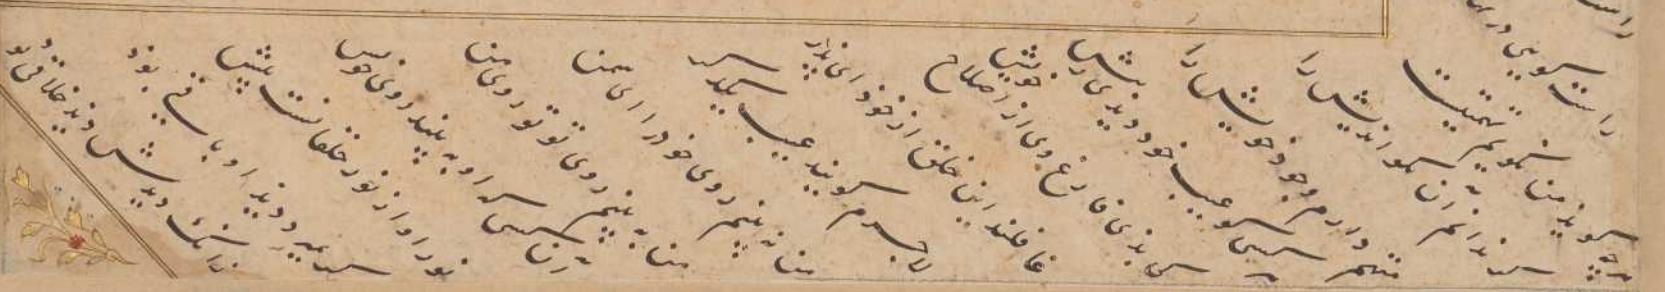 راست کویی در
هرچه کوید من نکویم تهمتیست
کژ ندانم آن نکو اندیش را
متهم دارم وجود خویش را
هر کسی کو عیب خود دیدی ز پیش
کی بدی فارغ وی از اصلاح خویش
غافلند این خلق از خود ای پدر
لاجرم کویند عیب یکدکر
من نه بینم روی خود را ای سمن
من به بینم روی تو تو روی من
آن کسی که او به بیند روی خویش
نور او از نور خلقانست پیش
کر بمیرد دید او باقی بود
زانک دیدش دید خلاقی بود